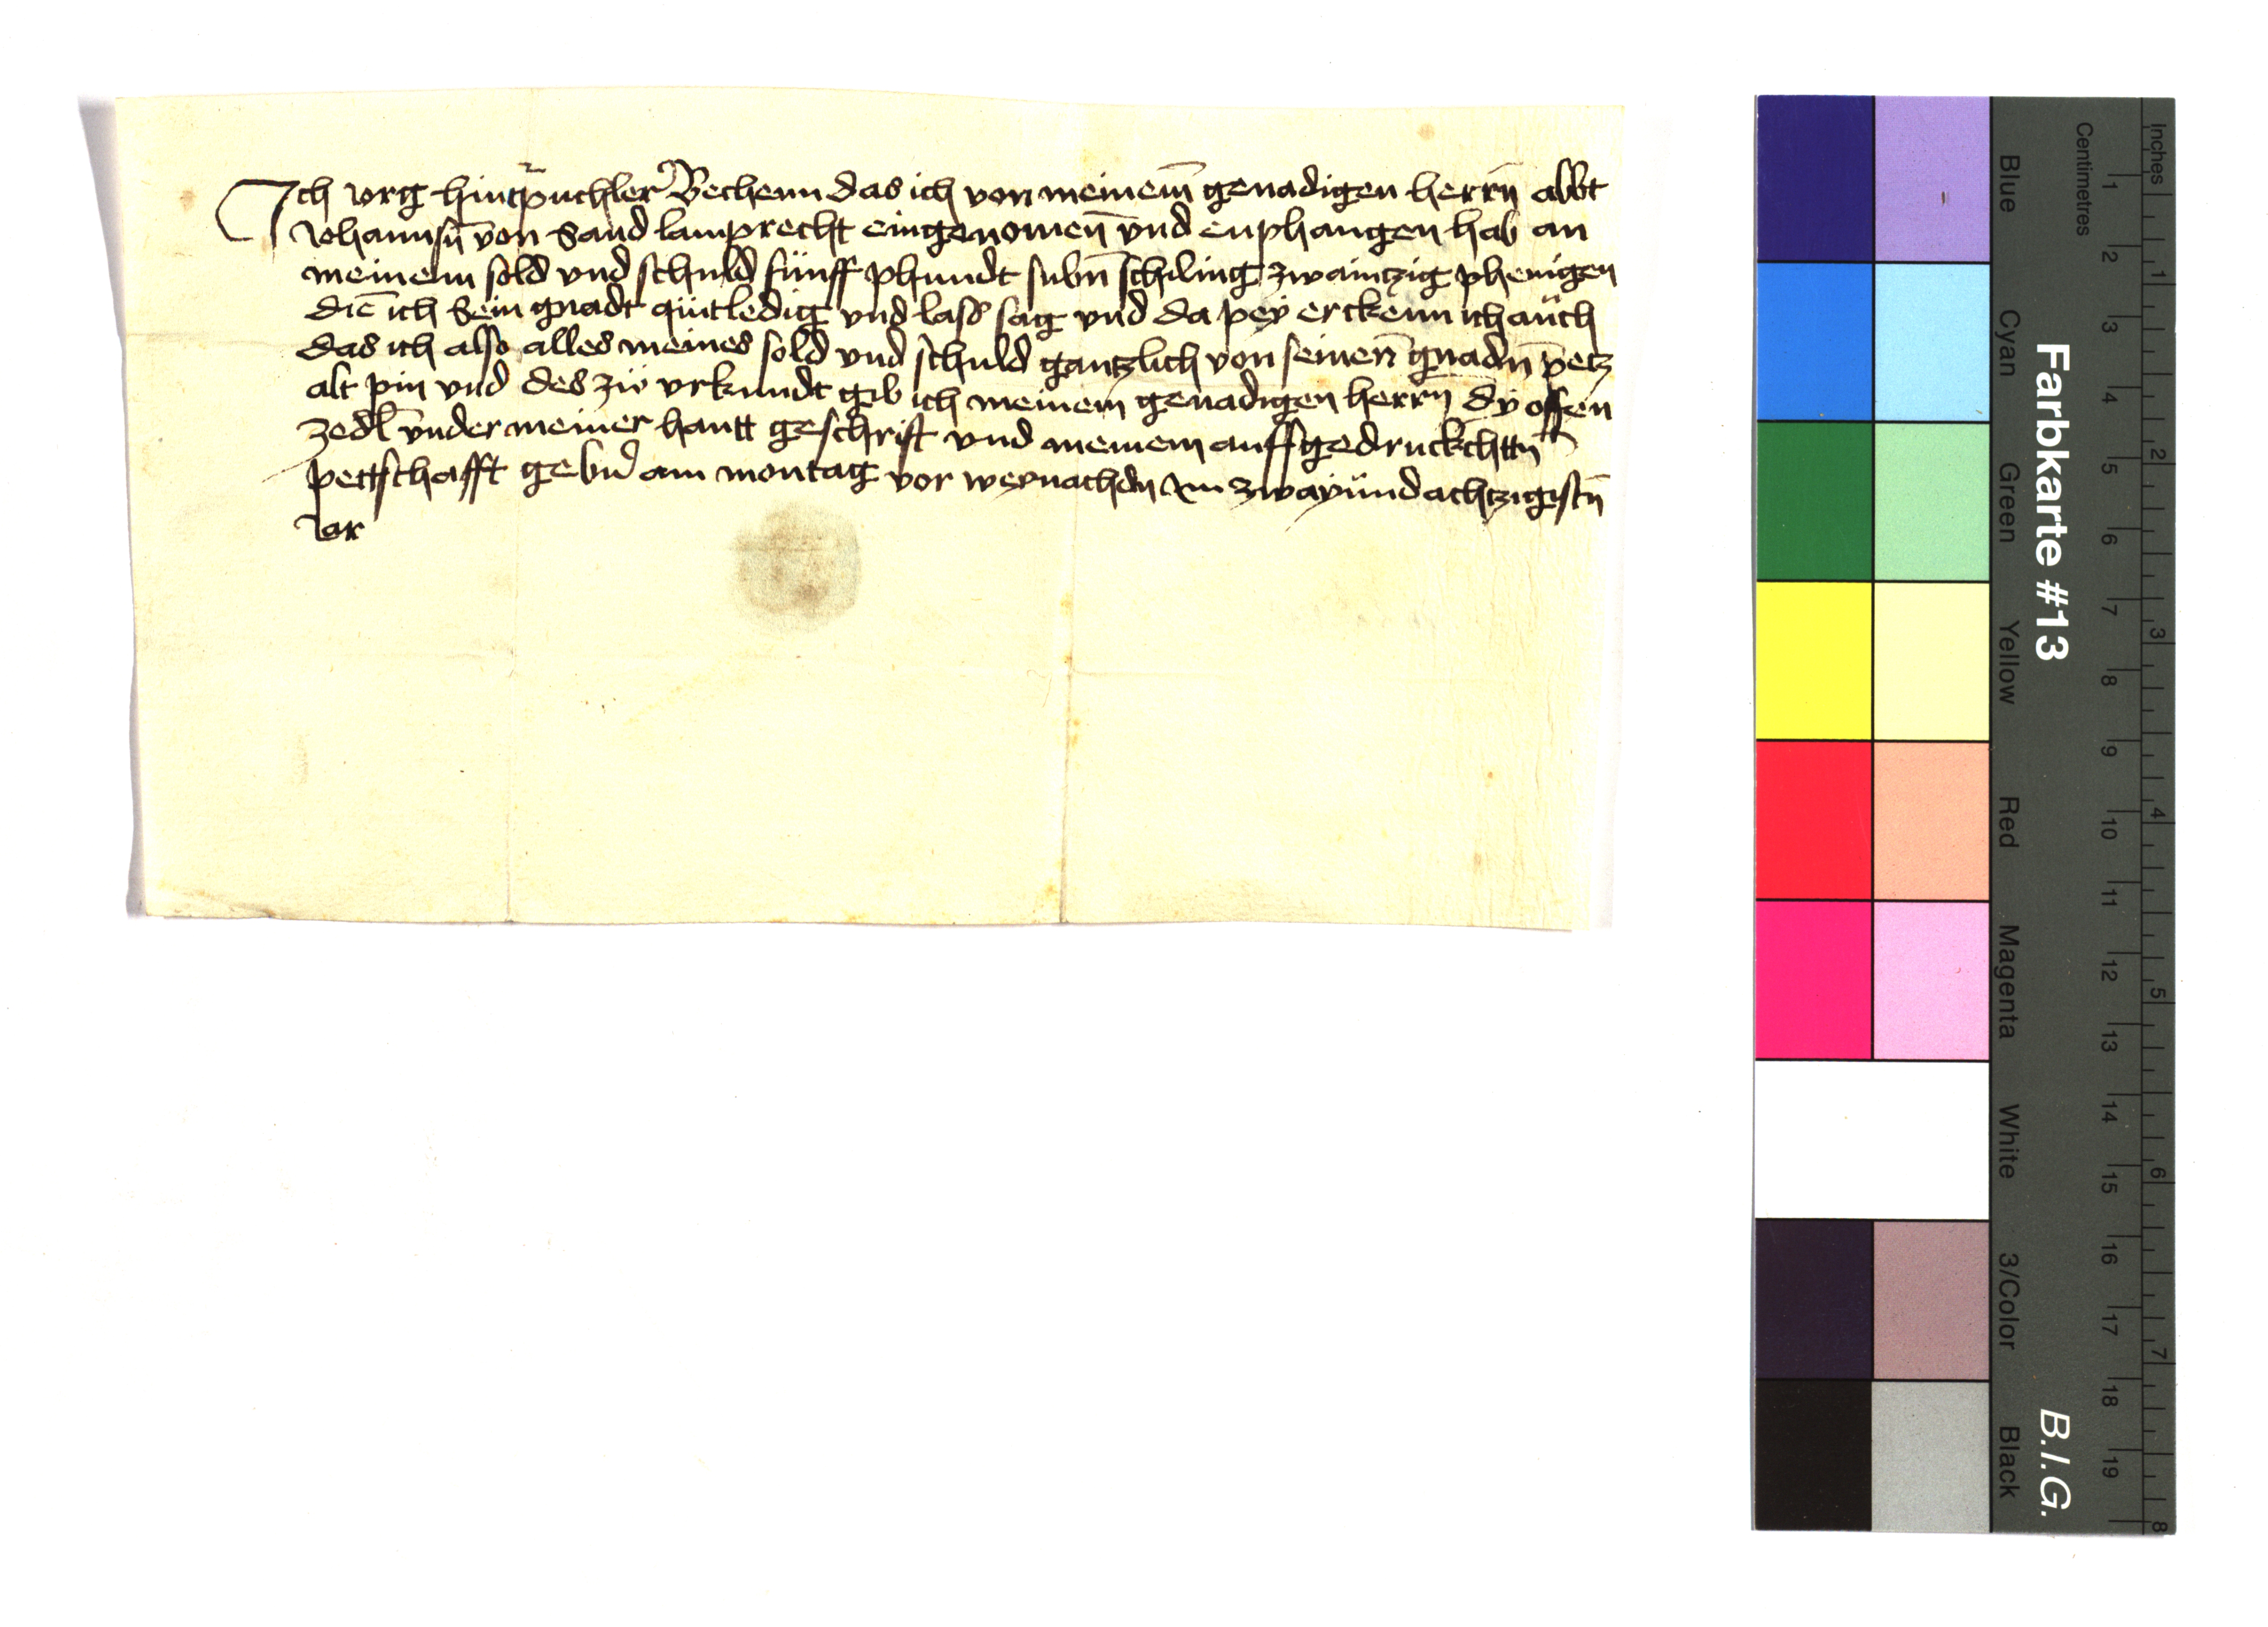 Ich Jorg hintpuchler Bechenn das ich von meinem genadigen herrn abbt
Johannsn von Sand lamprecht eingenomen vnd enphangen hab an
meinem sold vnd schuld fünff phundt subn schiling zwaintzig phenigen
die ich Sein gnadt qüitledig vnd lass sag vnd da peÿ erckenn ich aüch
das ich also alles meines sold vnd schuld gantzlich von seinen gnadn petz
alt pin vnd des zü vrkundt gib ich meinem genadigen herrn dÿ offen
zedl vnder meiner hantt geschrift vnd meinem auffgedruckchttn
pettschafft gebn am montag vor weynachdn Im zwaÿündachtzigistn
Jar
Farbkarte #13
B.I.G.
Blue
Cyan
Green
Yellow
Red
Magenta
White
3/Color
Black
Centimetres
1 2 3 4 5 6 7 8 9 10 11 12 13 14 15 16 17 18 19
Inches
1 2 3 4 5 6 7 8